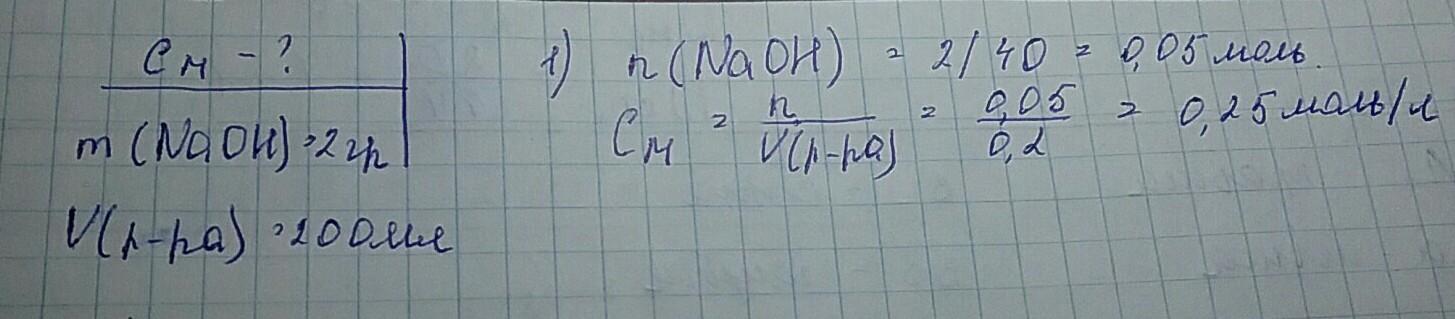 См - ?
m (NaOH) = 2 гр
V(р-ра) = 200 мл
1) n (NaOH) = 2/40 = 0,05 моль.
См = n / V(р-ра) = 0,05 / 0,2 = 0,25 моль/л